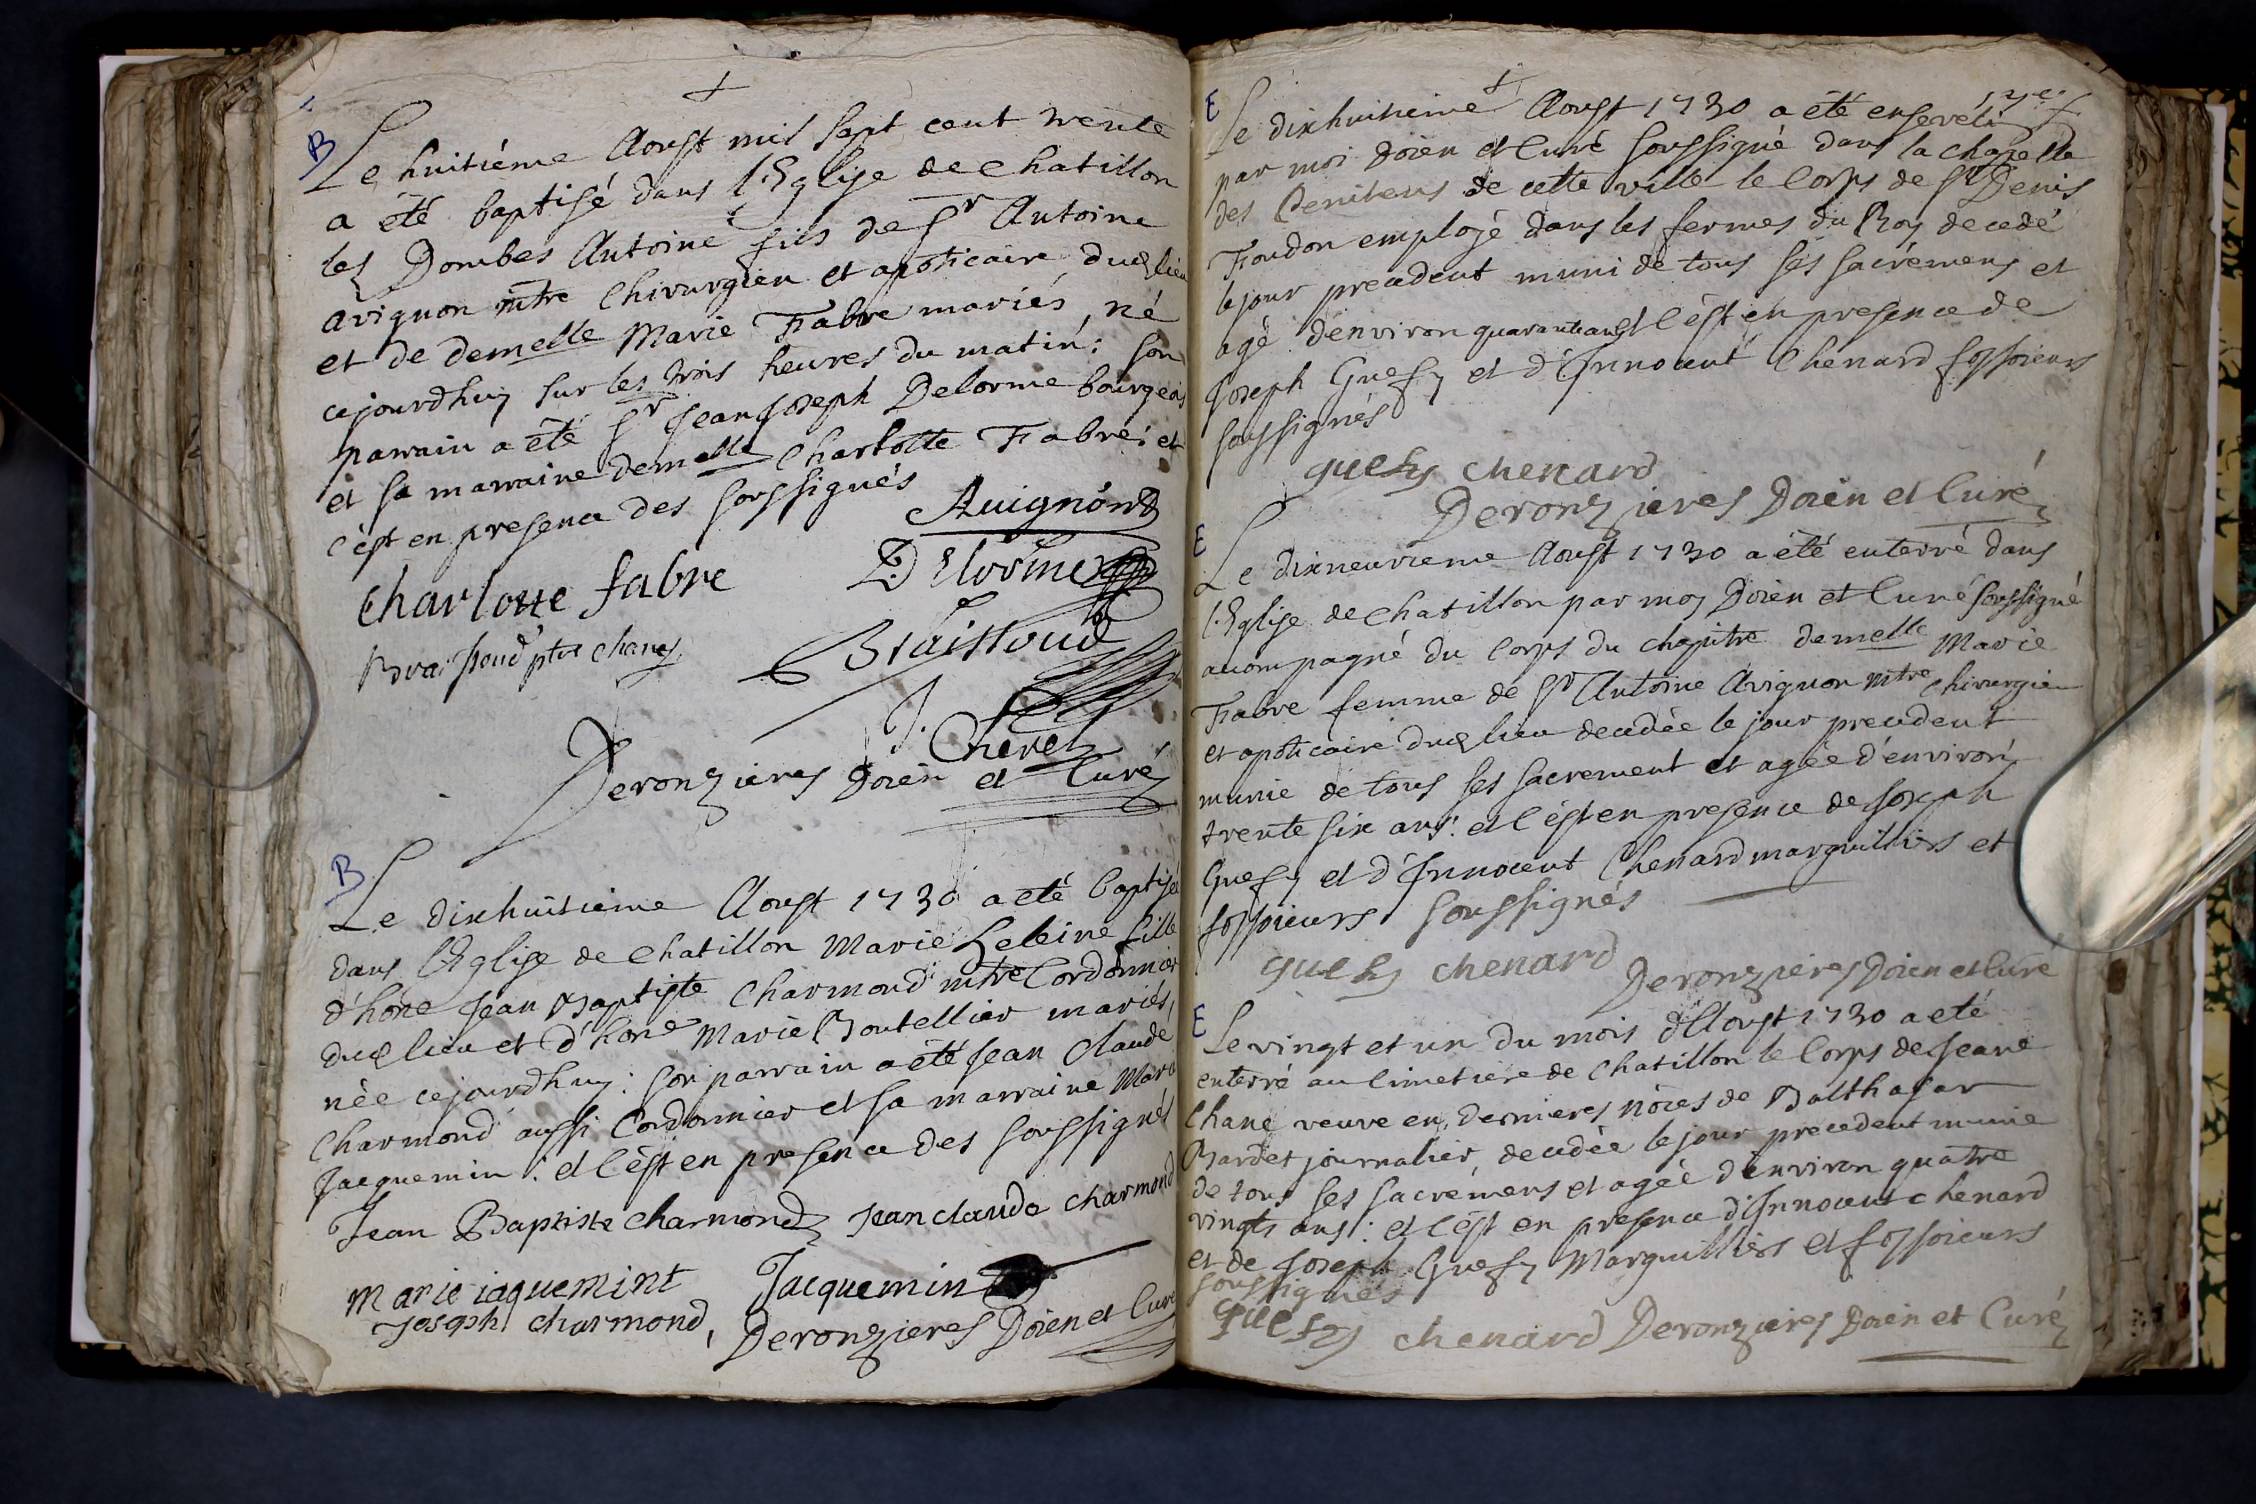 B
Le huitiéme Aoust mil sept cent trente
a été baptisé dans l'Eglise de Chatillon
les Dombes Antoine fils de Sr Antoine
Avignon mtre Chirurgien et apoticaire dud lieu
et de demelle Marie Fabre mariés, né
cejourdhuy sur les trois heures du matin: son
parrain a été Sr Jean Joseph Delorme bourgeois
et sa marraine demelle Charlotte Fabre: et
c'est en presence des soussignés
Avignon
Charlotte fabre
Delorme
Braissoud ptre chane
Braissoud
J. Cheret
Deronzieres Doien et Curé
B
Le dixhuitieme Aoust 1730 a eté baptisée
dans l'Eglise de Chatillon Marie Heleine fille
d'hone Jean Baptiste Charmond mtre Cordonnier
dud lieu et d'hone Marie Boutellier mariés,
née cejourdhuy: son parrain a été Jean Claude
Charmond aussi Cordonnier et sa marraine Marie
Jacquemin: et c'est en presence des soussignés
Jean Baptiste charmond Jean claude charmond
marie iaquemint Jacquemin
Joseph charmond, Deronzieres Doien et Curé
E
Le dixhuitieme Aoust 1730 a été enseveli
par moi Doien et Curé soussigné dans la chapelle
des Penitens de cette ville le Corps de Sr Denis
Foudon employé dans les fermes du Roy decedé
le jour precedent muni de tous ses sacrémens et
agé d'environ quarante ans et c'est en presence de
Joseph Guefy et d'Innocent Chenard fossoieurs
soussignés
guefy chenard
Deronzieres Doien et Curé
E
Le dixneuvieme Aoust 1730 a été enterré dans
l'Eglise de Chatillon par moy Doien et Curé soussigné
accompagné du Corps du chapitre demelle Marie
Fabre femme de Sr Antoine Avignon mtre Chirurgien
et apoticaire dud lieu decedée le jour precedent
munie de tous ses sacrement et agée d'environ
trente six ans: et c'est en presence de Joseph
Guefy et d'Innocent Chenard marguilliers et
fossoieurs soussignés
guefy chenard Deronzieres Doien et Curé
E
Le vingt et un du mois d'Aoust 1730 a eté
enterré au Cimetiere de Chatillon le Corps de Jeane
Chane veuve en dernieres nôces de Balthasar
Bardet journalier, decedée le jour precedent munie
de tous ses sacrémens et agée d'environ quatre
vingts ans: et c'est en presence d'Innocent chenard
et de Joseph Guefy Marguilliers et fossoieurs
soussignés
guefy chenard Deronzieres Doien et Curé